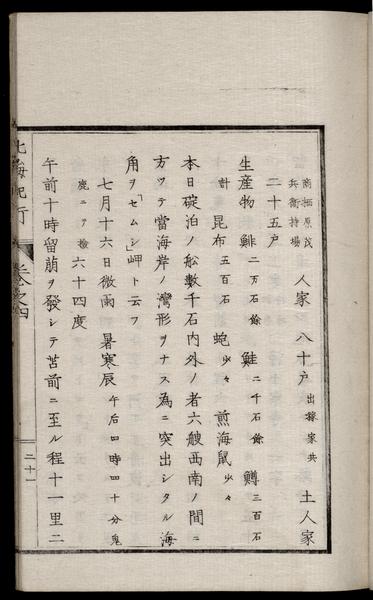 南栖原茂兵衛持場 人家 八十戸 出稼家共 土人家
二十五戸
生産物 鯡 二万石余 鮭 二千石余 鱒 三百石
計 昆布 五百石 鮑 少々 煎海鼠 少々
本日碇泊ノ船數千石内外ノ者六艘西南ノ間ニ
方ツテ當海岸ノ灣形ヲナス為ニ突出シタル海
角ヲ「セムシ」岬ト云フ
七月十六日微雨 暑寒辰 午后四時四十分鬼
鹿ニテ檢 六十四度
午前十時留萠ヲ發シテ苫前ニ至ル程十一里二
北海紀行
巻之四
二十一